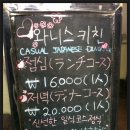 와니스키친
CASUAL JAPANESE
점심(ランチコース)
₩16000(1人)
저녁(ディナーコース)
₩20,000(1人)